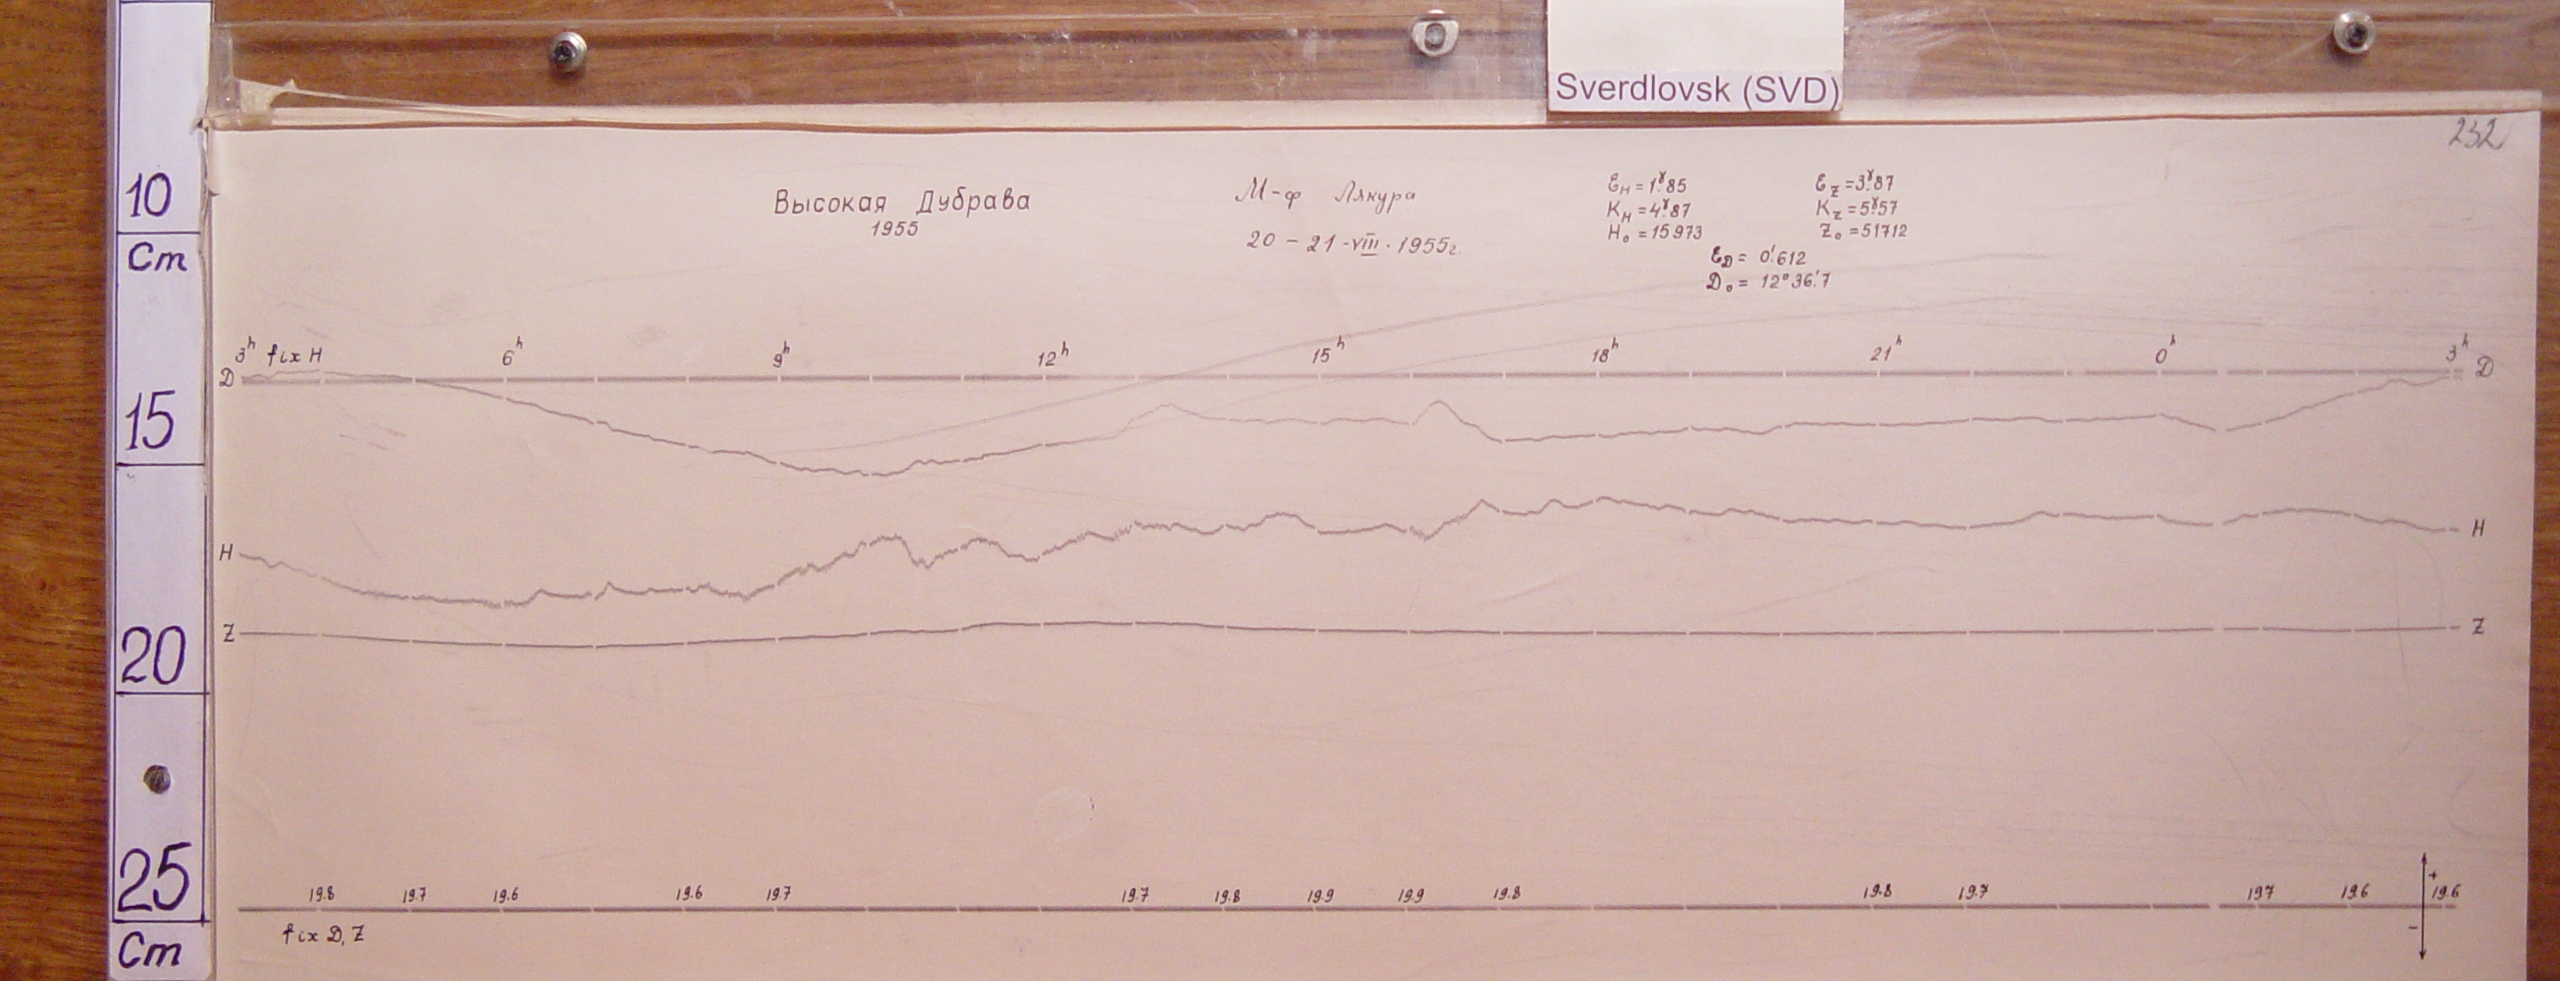 Sverdlovsk (SVD)
232
10
Cm
15
20
25
Cm
Высокая Дубрава
1955
М-ф Лякура
20 – 21 - VIII · 1955г.
Ɛ_H = 1^γ.85
K_H = 4^γ.87
H₀ = 15973
Ɛ_Z = 3^γ.87
K_Z = 5^γ.57
Z₀ = 51712
Ɛ_D = 0'.612
D₀ = 12°36'.7
3ʰ fix H 6ʰ 9ʰ 12ʰ 15ʰ 18ʰ 21ʰ 0ʰ 3ʰ
D D
H H
Z Z
19.8 19.7 19.6 19.6 19.7 19.7 19.8 19.9 19.9 19.8 19.8 19.7 19.7 19.6 + 19.6
fix D, Z −